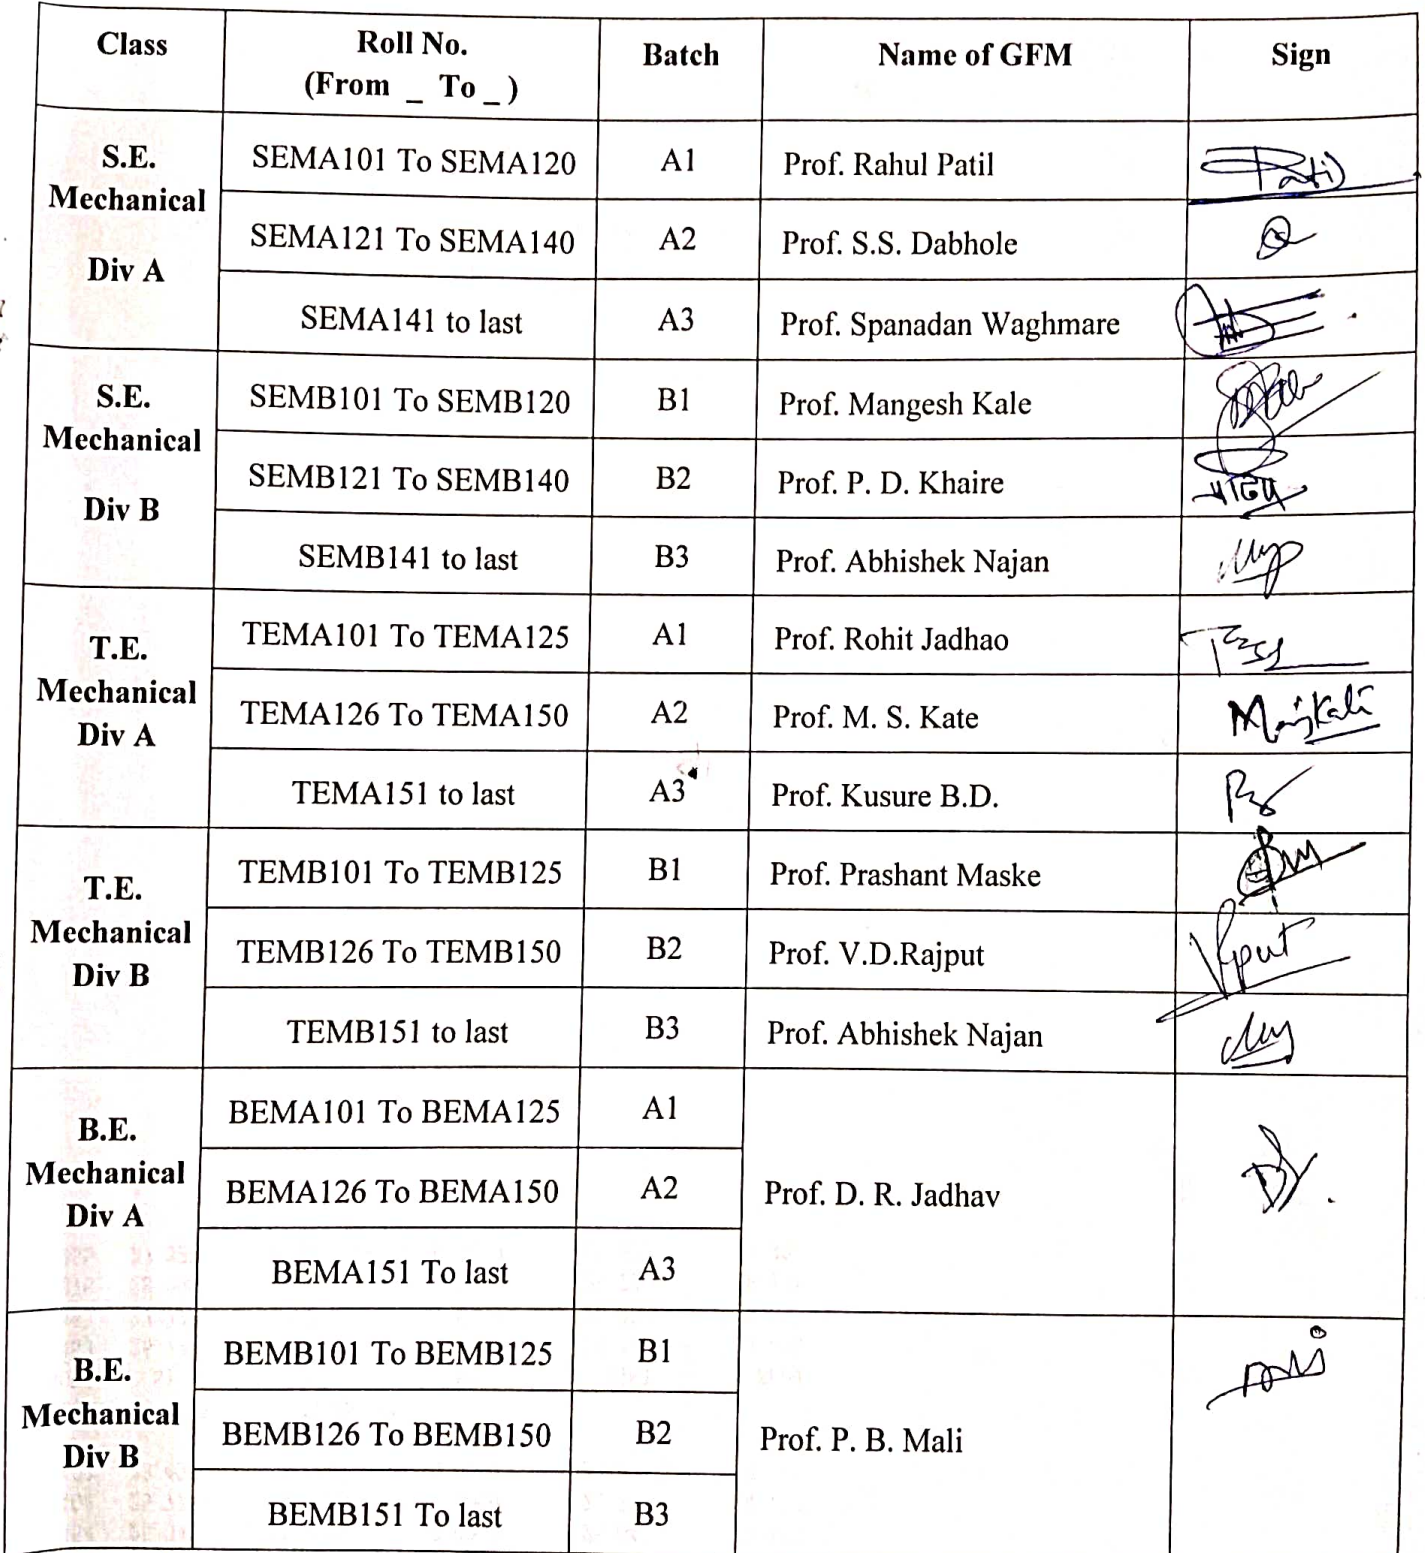 Class
Roll No.
(From _ To _ )
Batch
Name of GFM
Sign
S.E.
Mechanical
Div A
SEMA101 To SEMA120
A1
Prof. Rahul Patil
Patil
SEMA121 To SEMA140
A2
Prof. S.S. Dabhole
SEMA141 to last
A3
Prof. Spanadan Waghmare
S.E.
Mechanical
Div B
SEMB101 To SEMB120
B1
Prof. Mangesh Kale
SEMB121 To SEMB140
B2
Prof. P. D. Khaire
SEMB141 to last
B3
Prof. Abhishek Najan
T.E.
Mechanical
Div A
TEMA101 To TEMA125
A1
Prof. Rohit Jadhao
TEMA126 To TEMA150
A2
Prof. M. S. Kate
TEMA151 to last
A3
Prof. Kusure B.D.
T.E.
Mechanical
Div B
TEMB101 To TEMB125
B1
Prof. Prashant Maske
TEMB126 To TEMB150
B2
Prof. V.D.Rajput
TEMB151 to last
B3
Prof. Abhishek Najan
B.E.
Mechanical
Div A
BEMA101 To BEMA125
A1
BEMA126 To BEMA150
A2
Prof. D. R. Jadhav
BEMA151 To last
A3
B.E.
Mechanical
Div B
BEMB101 To BEMB125
B1
BEMB126 To BEMB150
B2
Prof. P. B. Mali
BEMB151 To last
B3